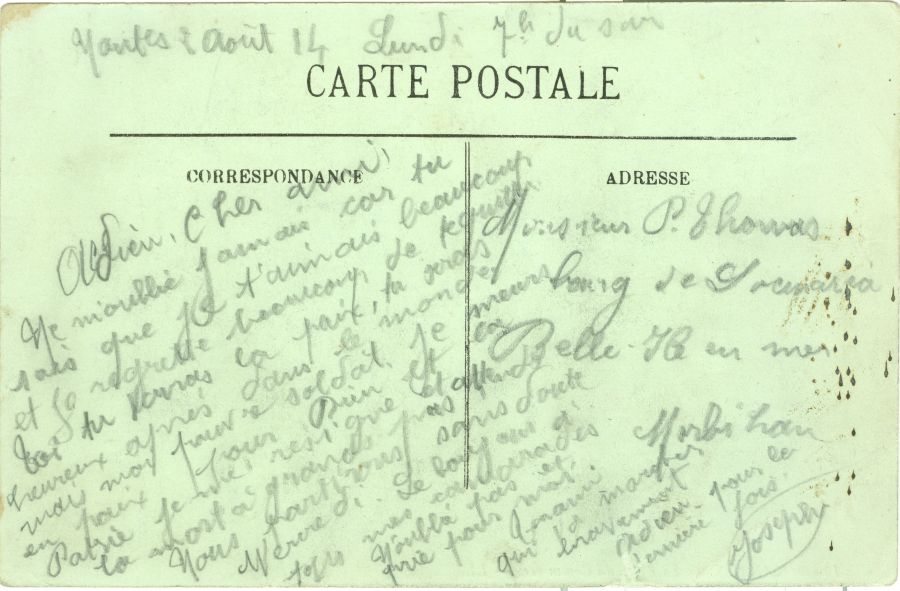 Nantes 2 août 14 Lundi 7h du soir
CARTE POSTALE
CORRESPONDANCE
ADRESSE
Adieu, Cher ami,
Ne m'oublie jamais car tu
sais que je t'aimais beaucoup
et je regrette beaucoup de te quitter
toi tu verras la paix, tu seras
heureux après dans le monde
mais moi pauvre soldat je meurs
en paix pour Dieu et la
Patrie je me résigne et attends
la mort à grands pas
Nous partirons sans doute
Mercredi. Le bonjour à
tous mes camarades
N'oublie pas et
prie pour moi
l'ami
qui va marcher
bravement
Adieu pour la
dernière fois.
Joseph
Monsieur P. Thomas
bourg de Locmaria
Belle-Ile en mer
Morbihan